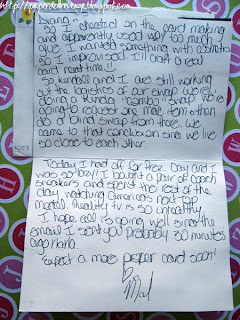 Diana,
So I "cheated" on the card making
and apparently used way too much
glue. I wanted something with cosmetics
so I improvised. I'll craft a real
card next time!!
So Kendall and I are still working
at the logistics of our swap. We're
doing a kinda "combo" swap. We're
going to request one male item then
do a blind swap from there. We
came to that conclusion since we live
so close to each other
Today I had off for Pres. Day and I
was so lazy! I bought a pair of coach
sneakers and spent the rest of the
day watching America's next top
model. Reality tv is so unhealthy.
I hope all is going well since the
email I sent you probably 30 minutes
ago haha.
Expect a more proper card soon!